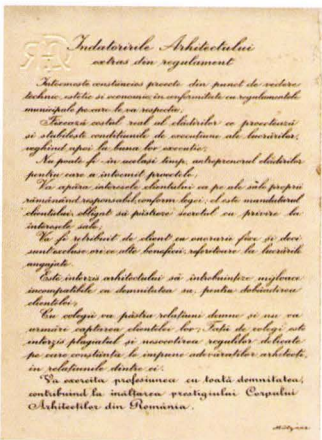 Indatoririle Arhitectului
extras din regulament
Intocmeste constiincios proecte din punct de vedere
technic, estetic si economic, in conformitate cu regulamentele
municipale pe care le va respecta.
Fixeaza costul real al cladirilor ce proecteaza
si stabileste conditiunile de executiune ale lucrarilor,
veghind apoi la buna lor executie.
Nu poate fi in acelasi timp, antreprenorul cladirilor
pentru care a intocmit proectele.
Va apara interesele clientului ca pe ale sale proprii
ramanand responsabil, conform legei, el este mandatarul
clientului, obligat sa pastreze secretul cu privire la
interesele sale.
Va fi retribuit de client cu onorarii fixe si deci
sunt excluse ori ce alte beneficii, referitoare la lucrarile
angajate.
Este interzis arhitectului sa intrebuinteze mijloace
incompatibile cu demnitatea sa, pentru dobandirea
clientelei.
Cu colegii va pastra relatiuni demne si nu va
urmari captarea clientelei lor. Fata de colegi este
interzis plagiatul si nesocotirea regulilor delicate
pe care constiinta le impune adevaratilor arhitecti,
in relatiunile dintre ei.
Va exercita profesiunea cu toata demnitatea,
contribuind la inaltarea prestigiului Corpului
Arhitectilor din Romania.